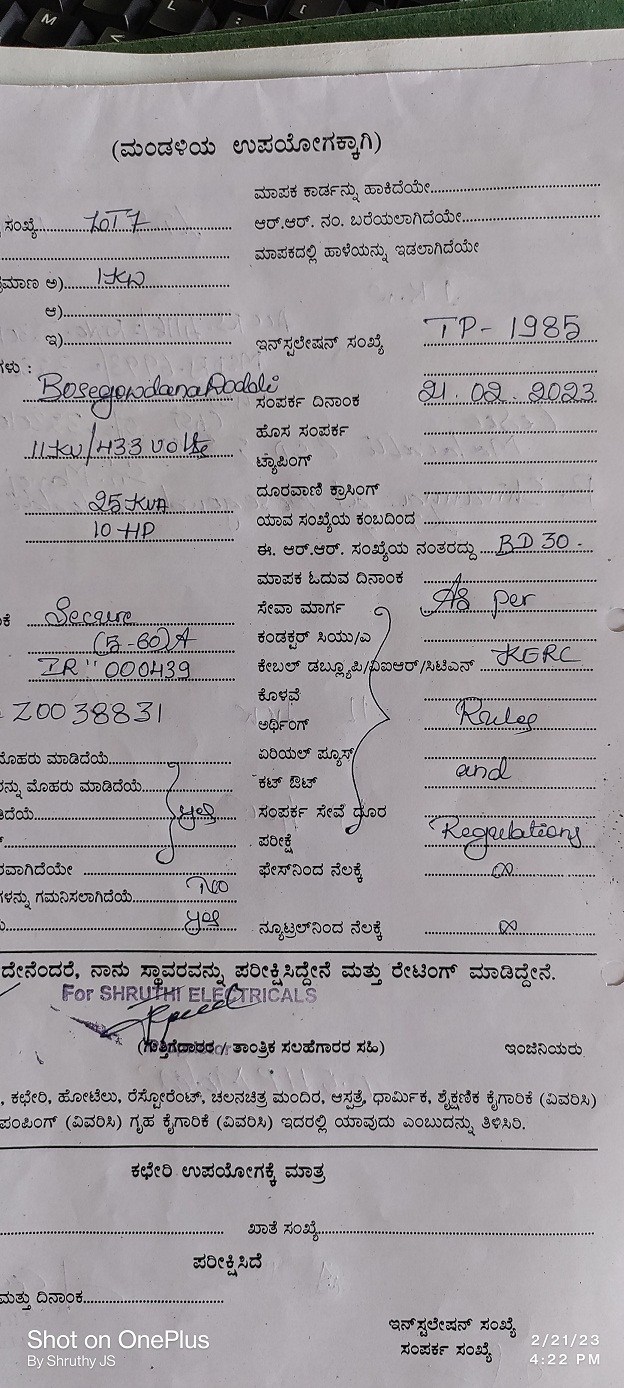 (ಮಂಡಳಿಯ ಉಪಯೋಗಕ್ಕಾಗಿ)
ಮಾಪಕ ಕಾರ್ಡನ್ನು ಹಾಕಿದೆಯೇ
ಸಂಖ್ಯೆ
ಆರ್.ಆರ್. ನಂ. ಬರೆಯಲಾಗಿದೆಯೇ
ಮಾಪಕದಲ್ಲಿ ಹಾಳೆಯನ್ನು ಇಡಲಾಗಿದೆಯೇ
ಮಾಣ ಅ) 1KW
ಆ)
ಇ)
ಇನ್‌ಸ್ಟಲೇಷನ್ ಸಂಖ್ಯೆ TP-1985
ಗಳು :
Bosegowdana Doddi
ಸಂಪರ್ಕ ದಿನಾಂಕ 21.02.2023
ಹೊಸ ಸಂಪರ್ಕ
11KV/433 Volts
ಟ್ಯಾಪಿಂಗ್
25 KVA
ದೂರವಾಣಿ ಕ್ರಾಸಿಂಗ್
10 HP
ಯಾವ ಸಂಖ್ಯೆಯ ಕಂಬದಿಂದ
ಈ. ಆರ್.ಆರ್. ಸಂಖ್ಯೆಯ ನಂತರದ್ದು BD 30.
ಮಾಪಕ ಓದುವ ದಿನಾಂಕ
Secure
ಸೇವಾ ಮಾರ್ಗ As per
(5-60)A
ಕಂಡಕ್ಟರ್ ಸಿಯು/ಎ
IR" 000439
ಕೇಬಲ್ ಡಬ್ಲ್ಯೂಪಿ/ವಿಐಆರ್/ಸಿಟಿಎನ್ KERC
ಕೊಳವೆ
Z0038831
ಅರ್ಥಿಂಗ್ Rules
ಮೊಹರು ಮಾಡಿದೆಯೆ
ಏರಿಯಲ್ ಫ್ಯೂಸ್
ರನ್ನು ಮೊಹರು ಮಾಡಿದೆಯೆ
ಕಟ್ ಔಟ್ and
ಡಿದೆಯೆ yes
ಸಂಪರ್ಕ ಸೇವೆ ದೂರ
ಪರೀಕ್ಷೆ Regulations
ರವಾಗಿದೆಯೇ
ಫೇಸ್‌ನಿಂದ ನೆಲಕ್ಕೆ ∞
ಗಳನ್ನು ಗಮನಿಸಲಾಗಿದೆಯೆ No
yes
ನ್ಯೂಟ್ರಲ್‌ನಿಂದ ನೆಲಕ್ಕೆ ∞
ದೇನೆಂದರೆ, ನಾನು ಸ್ಥಾವರವನ್ನು ಪರೀಕ್ಷಿಸಿದ್ದೇನೆ ಮತ್ತು ರೇಟಿಂಗ್ ಮಾಡಿದ್ದೇನೆ.
For SHRUTHI ELECTRICALS
(ಗುತ್ತಿಗೆದಾರರ / ತಾಂತ್ರಿಕ ಸಲಹೆಗಾರರ ಸಹಿ) ಇಂಜಿನಿಯರು
, ಕಛೇರಿ, ಹೋಟೆಲು, ರೆಸ್ಟೋರೆಂಟ್, ಚಲನಚಿತ್ರ ಮಂದಿರ, ಆಸ್ಪತ್ರೆ, ಧಾರ್ಮಿಕ, ಶೈಕ್ಷಣಿಕ ಕೈಗಾರಿಕೆ (ವಿವರಿಸಿ)
ಪಂಪಿಂಗ್ (ವಿವರಿಸಿ) ಗೃಹ ಕೈಗಾರಿಕೆ (ವಿವರಿಸಿ) ಇದರಲ್ಲಿ ಯಾವುದು ಎಂಬುದನ್ನು ತಿಳಿಸಿರಿ.
ಕಛೇರಿ ಉಪಯೋಗಕ್ಕೆ ಮಾತ್ರ
ಖಾತೆ ಸಂಖ್ಯೆ
ಪರೀಕ್ಷಿಸಿದೆ
ಮತ್ತು ದಿನಾಂಕ
ಇನ್‌ಸ್ಟಲೇಷನ್ ಸಂಖ್ಯೆ
ಸಂಪರ್ಕ ಸಂಖ್ಯೆ
Shot on OnePlus
By Shruthy JS
2/21/23
4:22 PM